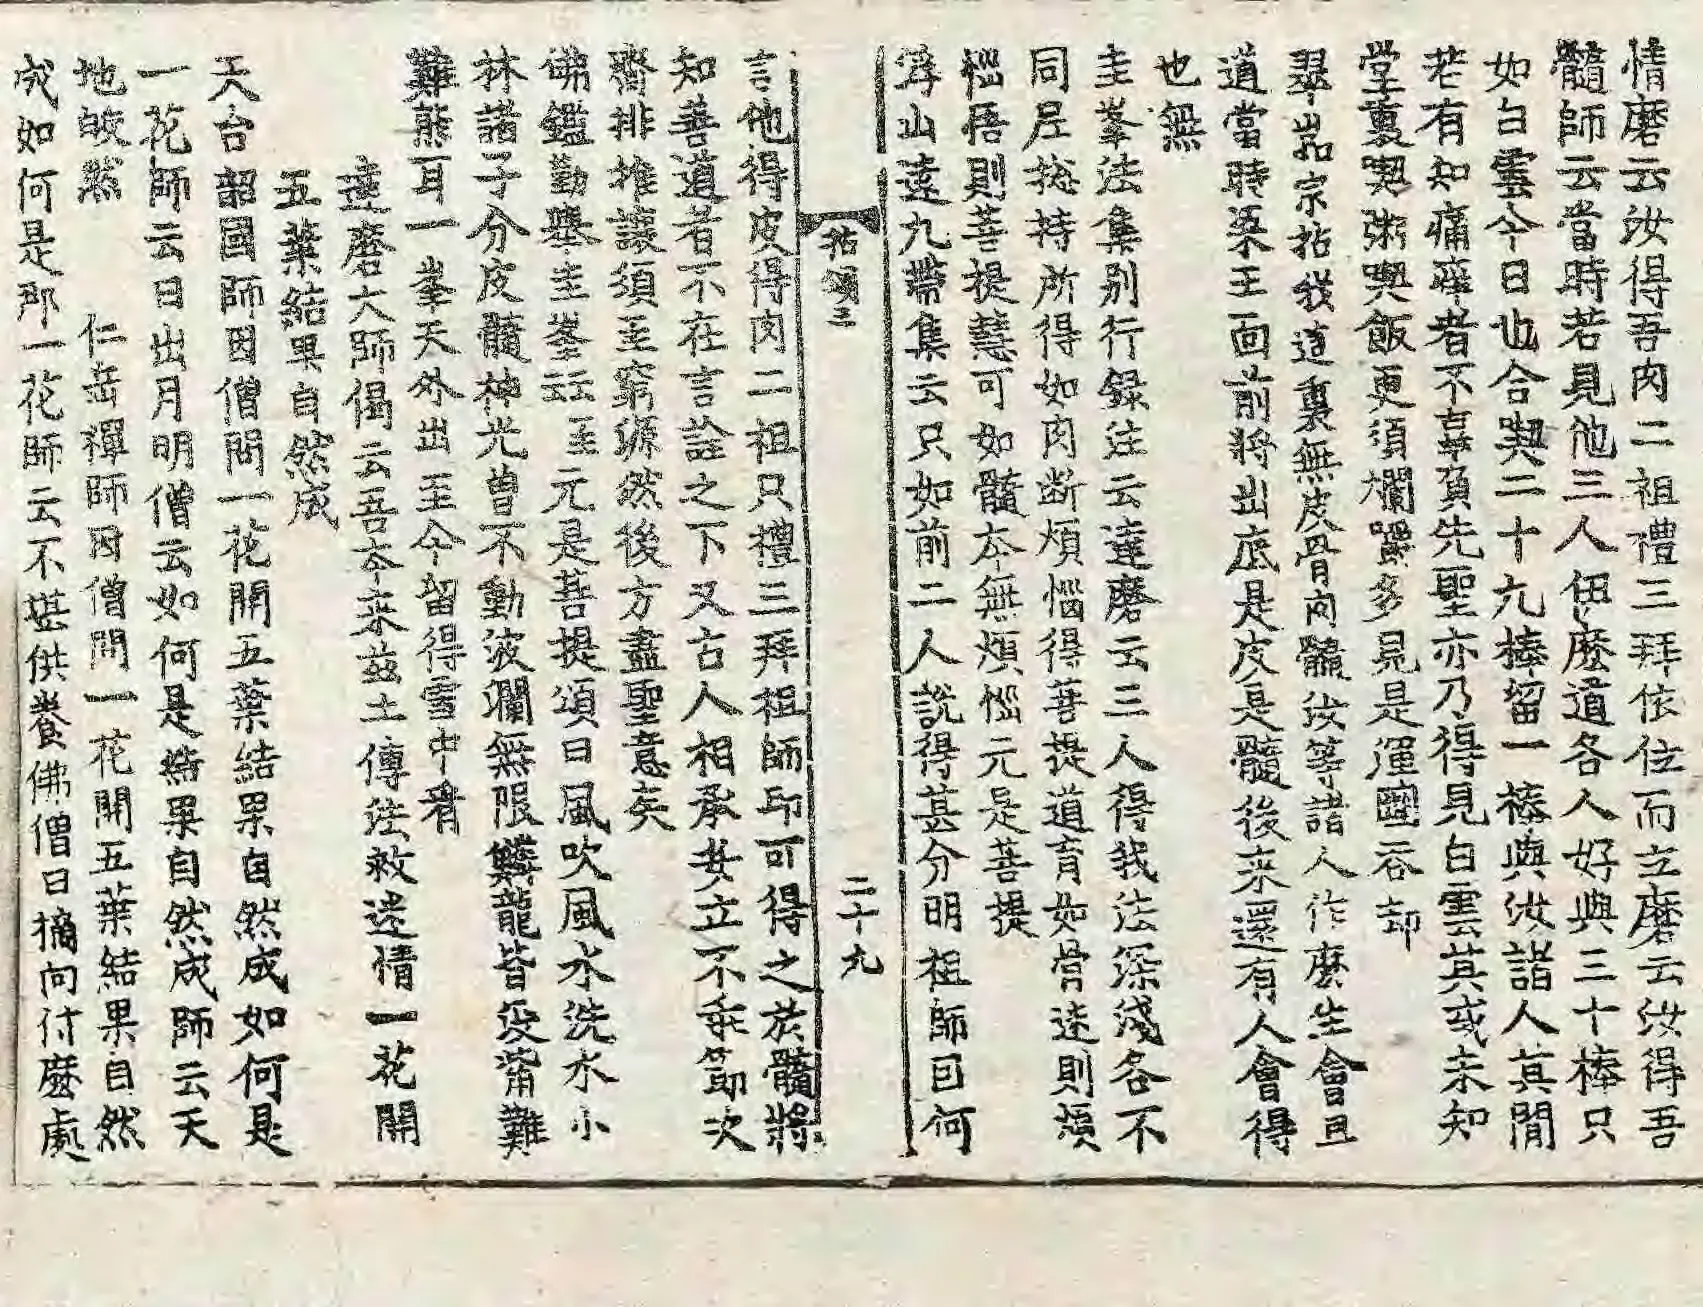 情磨云汝得吾肉二祖禮三拜依位而立磨云汝得吾
髓師云當時若見他三人伊麼道各人好與三十棒只
如白雲今日也合喫二十九棒留一棒與汝諸人其間
若有知痛痒者不辜負先聖亦乃得見白雲其或未知
堂裏喫粥喫飯更須爛嚼多見是渾圇呑却
翠嵓宗拈我這裏無皮骨肉髓汝等諸人作麼生會且
道當時梁王面前將出底是皮是髓後來還有人會得
也無
圭峯法集别行録注云達磨云三人得我法深淺各不
同尼捴持所得如肉断煩惱得菩提道育如骨迷則煩
惱悟則菩提慧可如髓本無煩惱元是菩提
浮山遠九帶集云只如前二人說得甚分明祖師因何
拈頌三
二十九
言他得皮得肉二祖只禮三拜祖師印可得之於髓將
知善道者不在言詮之下又古人相承安立不乖節次
齊排堆讓須至窮源然後方盡聖意矣
佛鑑勤擧圭峯云云至元是菩提頌曰風吹風水洗水小
林諸子分皮髓神光曾不動波瀾無限魚龍皆没溺難
難熊耳一峯天外出至今留得雪中看
達磨大師偈云吾本来玆土傳法救迷情一花開
五葉結果自然成
天台韶國師因僧問一花開五葉結果自然成如何是
一花師云日出月明僧云如何是結果自然成師云天
地皎然
仁岳禪師因僧問一花開五葉結果自然
成如何是那一花師云不堪供養佛僧曰摘向什麼處